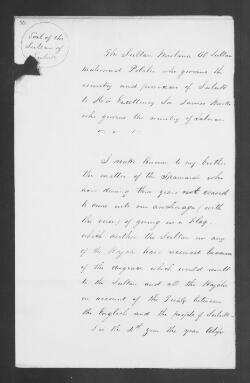 Seal of the
Sultan of
Sulu
The Sultan Maulana Al Sultan
Mahomed Pulalu who governs the
country and provinces of Sulu
to His Excellency Sir James Brooke
who governs the country of Labuan
I make known to my brother
the matter of the Spaniards who
have during this year not ceased
to come into our anchorage with
the view of giving us a Flag
which neither the Sultan nor any
of the have received because
of the which would result
to the Sultan and all the
on account of the Treaty between
the English and the people of
in the the year Alip